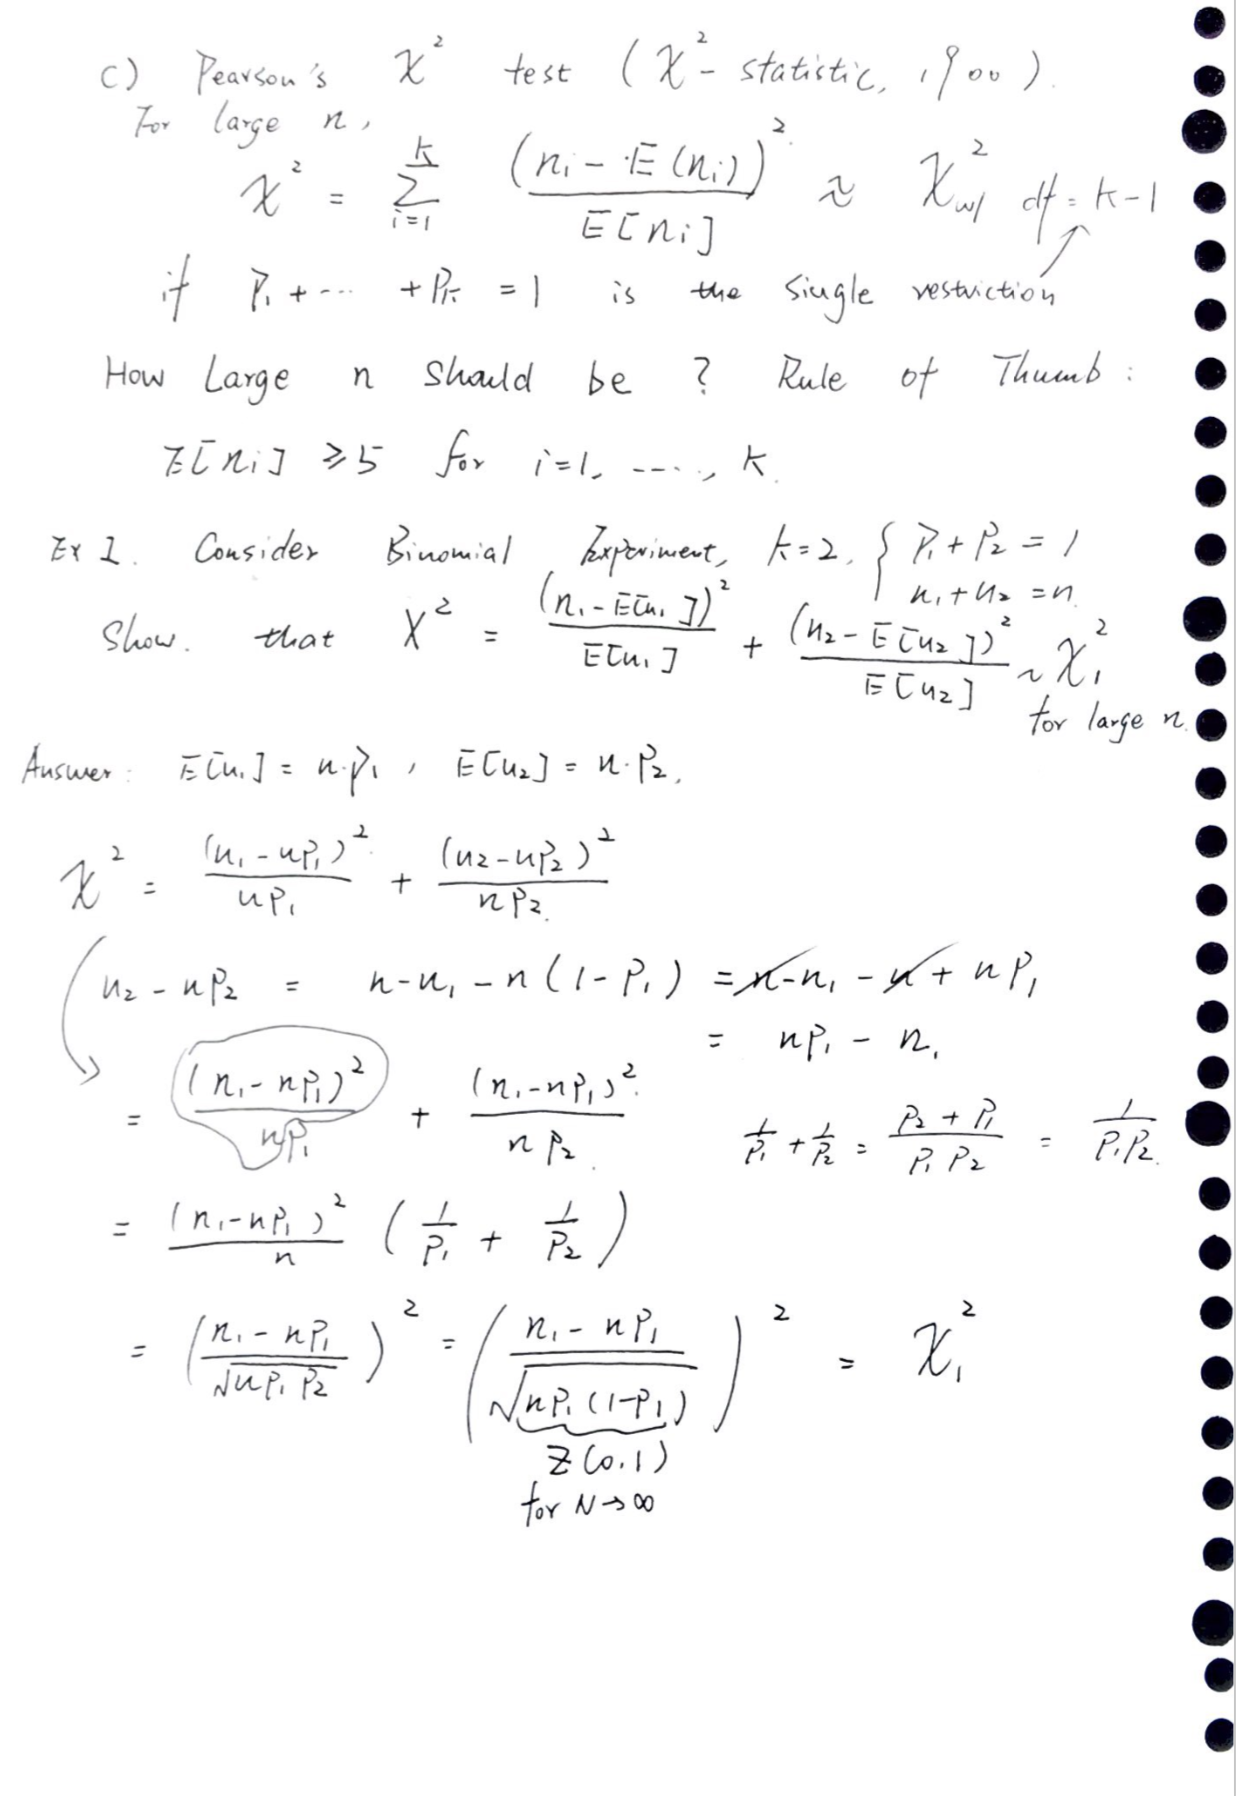 c) Pearson's χ² test (χ²- statistic, 1900).
For large n,
χ² = Σ_{i=1}^{k} (ni - E(ni))² / E[ni] ≈ χ² w/ df = k-1
if P₁ + ... + Pk = 1 is the single restriction
How Large n should be ? Rule of Thumb :
E[ni] ≥ 5 for i=1, ....., k.
Ex 1. Consider Binomial Experiment, k=2, { P₁ + P₂ = 1
n₁ + n₂ = n
Show. that X² = (n₁ - E[n₁])² / E[n₁] + (n₂ - E[n₂])² / E[n₂] ~ χ₁²
for large n.
Answer : E[n₁] = n·p₁ , E[n₂] = n·P₂.
χ² = (n₁ - nP₁)² / nP₁ + (n₂ - nP₂)² / nP₂.
n₂ - nP₂ = n - n₁ - n(1-P₁) = n - n₁ - n + nP₁
= nP₁ - n₁
= (n₁ - nP₁)² / nP₁ + (n₁ - nP₁)² / nP₂. 1/P₁ + 1/P₂ = (P₂ + P₁) / P₁P₂ = 1 / P₁P₂.
= (n₁ - nP₁)² / n (1/P₁ + 1/P₂)
= ((n₁ - nP₁) / √nP₁P₂)² = ((n₁ - nP₁) / √nP₁(1-P₁))² = χ₁²
Z(0,1)
for N→∞